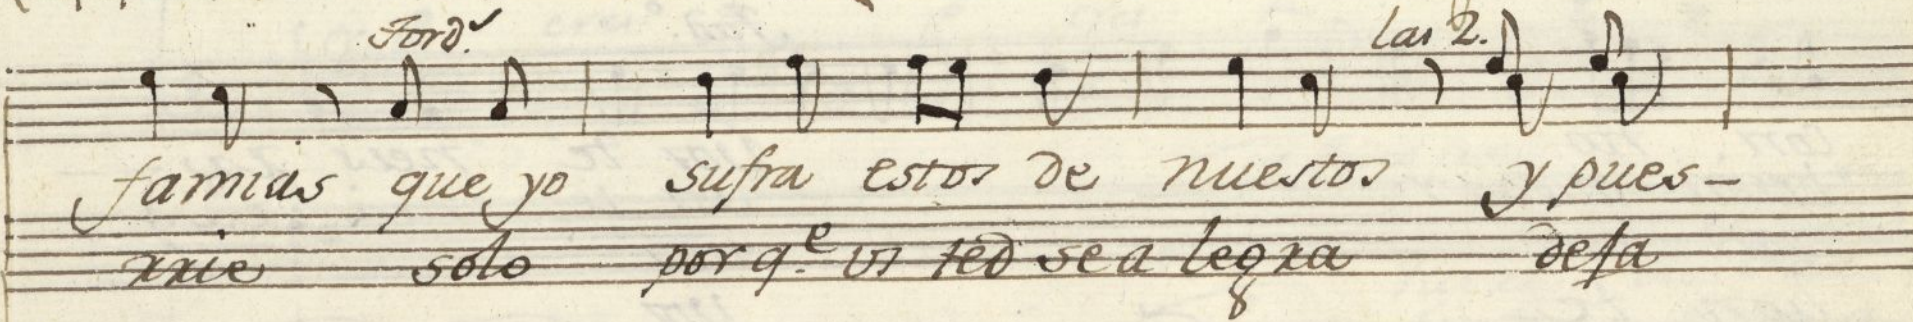 Jord.ª las 2.
famias que yo sufra estos de nuestos y pues-
rrie solo porq.e us ted se a legra desa
8